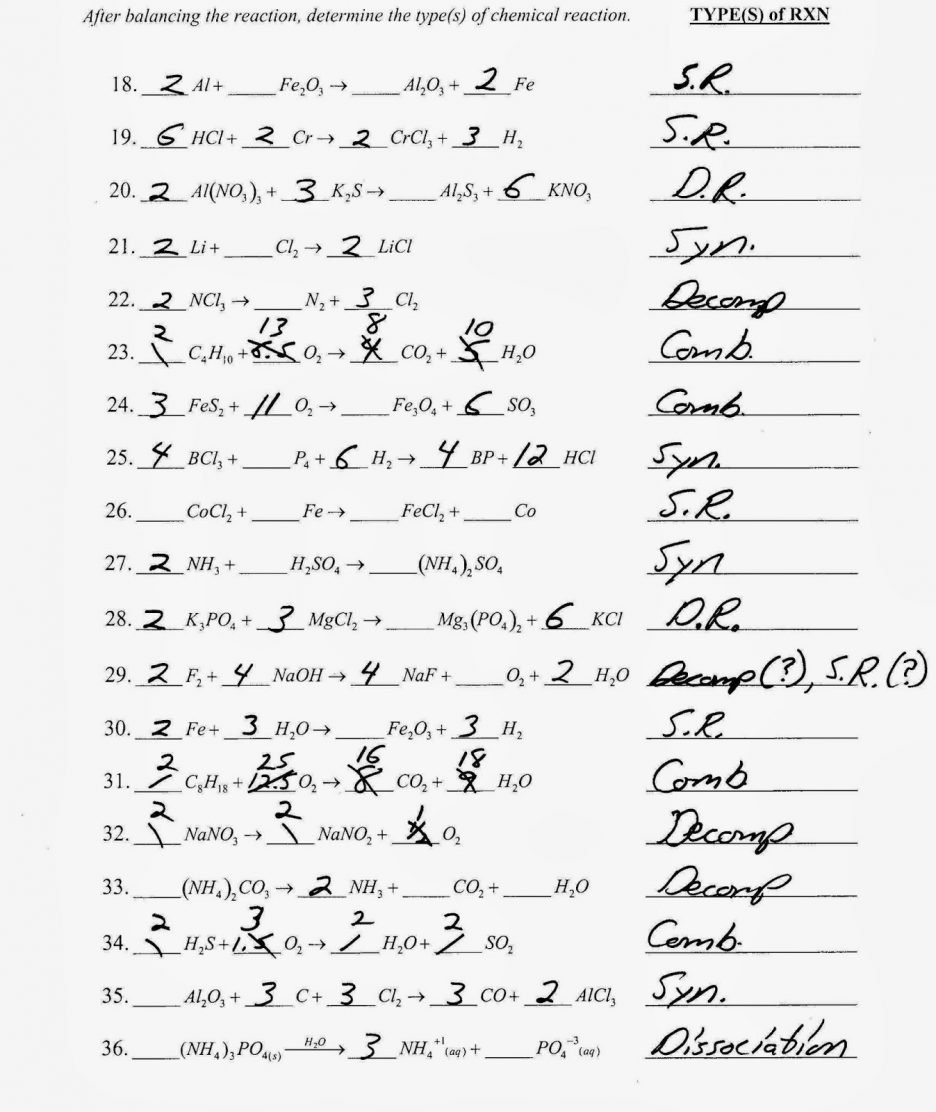 After balancing the reaction, determine the type(s) of chemical reaction. TYPE(S) of RXN
18. 2 Al + ____ Fe₂O₃ → ____ Al₂O₃ + 2 Fe S.R.
19. 6 HCl + 2 Cr → 2 CrCl₃ + 3 H₂ S.R.
20. 2 Al(NO₃)₃ + 3 K₂S → ____ Al₂S₃ + 6 KNO₃ D.R.
21. 2 Li + ____ Cl₂ → 2 LiCl Syn.
22. 2 NCl₃ → ____ N₂ + 3 Cl₂ Decomp
2 13 8 10
23. 1 C₄H₁₀ + 6.5 O₂ → 4 CO₂ + 5 H₂O Comb.
24. 3 FeS₂ + 11 O₂ → ____ Fe₃O₄ + 6 SO₃ Comb.
25. 4 BCl₃ + ____ P₄ + 6 H₂ → 4 BP + 12 HCl Syn.
26. ____ CoCl₂ + ____ Fe → ____ FeCl₂ + ____ Co S.R.
27. 2 NH₃ + ____ H₂SO₄ → ____ (NH₄)₂SO₄ Syn
28. 2 K₃PO₄ + 3 MgCl₂ → ____ Mg₃(PO₄)₂ + 6 KCl D.R.
29. 2 F₂ + 4 NaOH → 4 NaF + ____ O₂ + 2 H₂O Decomp(?), S.R.(?)
30. 2 Fe + 3 H₂O → ____ Fe₂O₃ + 3 H₂ S.R.
2 25 16 18
31. 1 C₈H₁₈ + 12.5 O₂ → 8 CO₂ + 9 H₂O Comb
2 2 1
32. 1 NaNO₃ → 1 NaNO₂ + ½ O₂ Decomp
33. ____ (NH₄)₂CO₃ → 2 NH₃ + ____ CO₂ + ____ H₂O Decomp
2 3 2 2
34. 1 H₂S + 1.5 O₂ → 1 H₂O + 1 SO₂ Comb.
35. ____ Al₂O₃ + 3 C + 3 Cl₂ → 3 CO + 2 AlCl₃ Syn.
36. ____ (NH₄)₃PO₄₍ₛ₎ H₂O → 3 NH₄⁺¹(aq) + ____ PO₄⁻³(aq) Dissociation